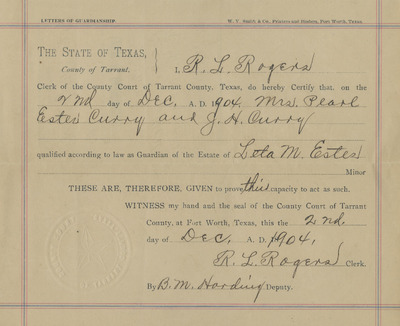 LETTERS OF GUARDIANSHIP. W. T. Smith & Co., Printers and Binders, Fort Worth, Texas.
THE STATE OF TEXAS,
County of Tarrant. I, R. L. Rogers
Clerk of the County Court of Tarrant County, Texas, do hereby Certify that on the
2nd day of Dec, A. D. 1904, Mrs. Pearl
Estes Curry and J. H. Curry
qualified according to law as Guardian of the Estate of Lota M. Estes
Minor
THESE ARE, THEREFORE, GIVEN to prove this capacity to act as such.
WITNESS my hand and the seal of the County Court of Tarrant
County, at Fort Worth, Texas, this the 2nd.
day of Dec, A. D. 1904,
R. L. Rogers Clerk.
By B. M. Harding Deputy.